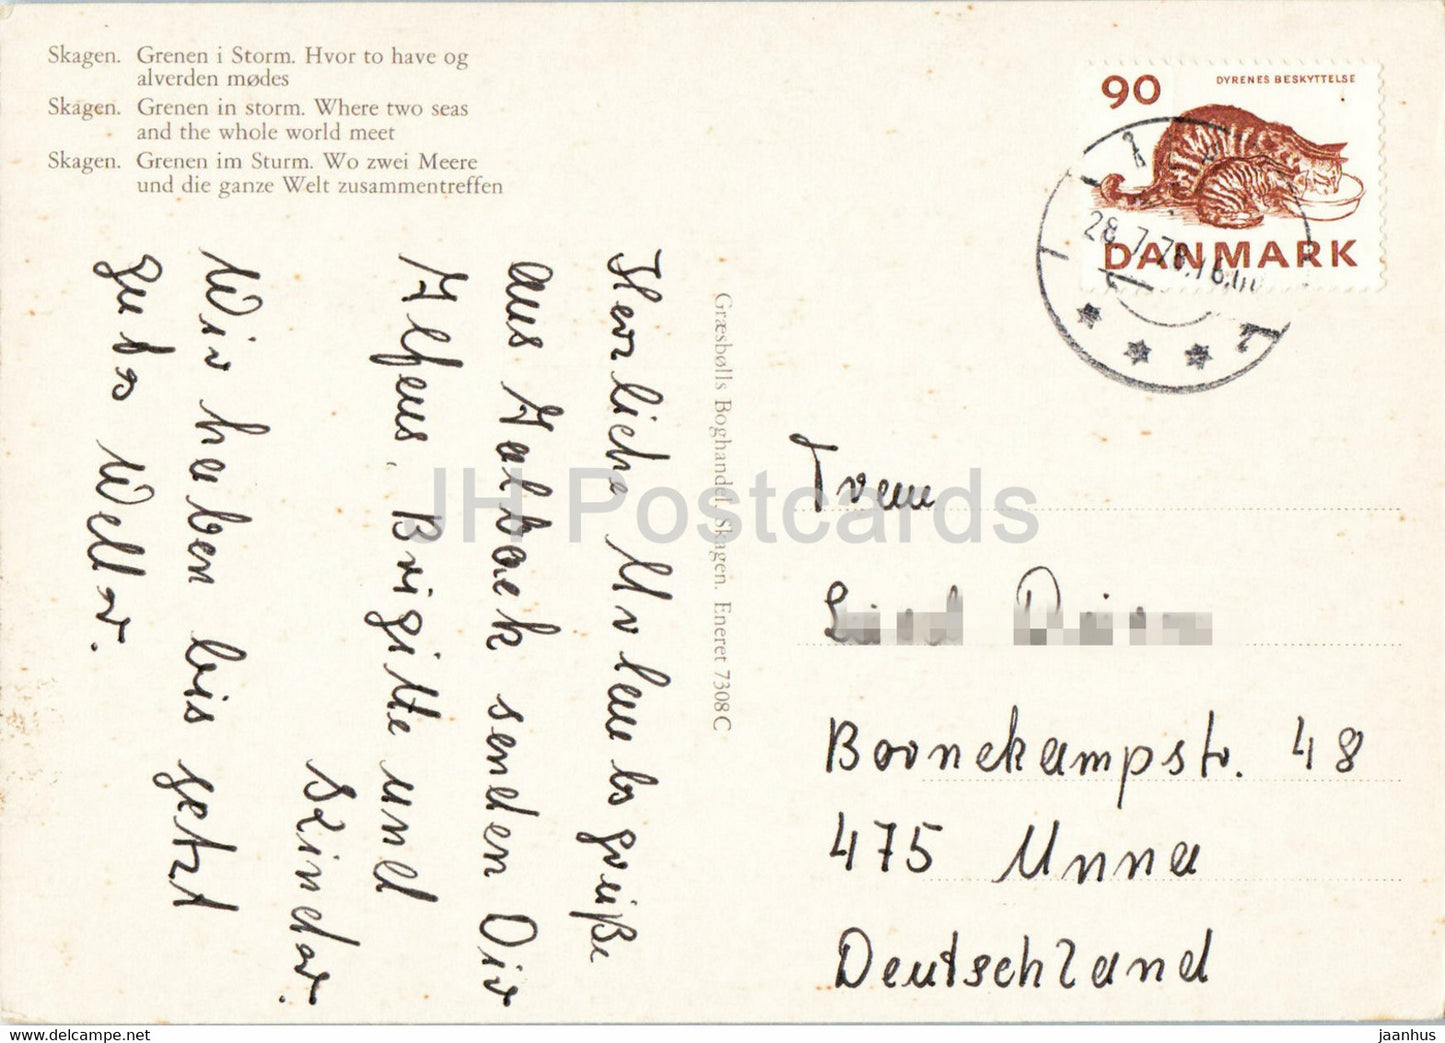 Skagen. Grenen i Storm. Hvor to have og
alverden mødes
Skagen. Grenen in storm. Where two seas
and the whole world meet
Skagen. Grenen im Sturm. Wo zwei Meere
und die ganze Welt zusammentreffen
90
DYRENES BESKYTTELSE
DANMARK
28.7.76.16.00
Græsbølls Boghandel, Skagen. Eneret 7308 C
Herzliche Urlaubsgrüße
aus Aalbæk senden Dir
Alfons, Brigitte und
Kinder.
Wir haben bis jetzt
gutes Wetter.
Frau
Boonekampstr. 48
475 Unna
Deutschland
JH Postcards
www.delcampe.net
jaanhus